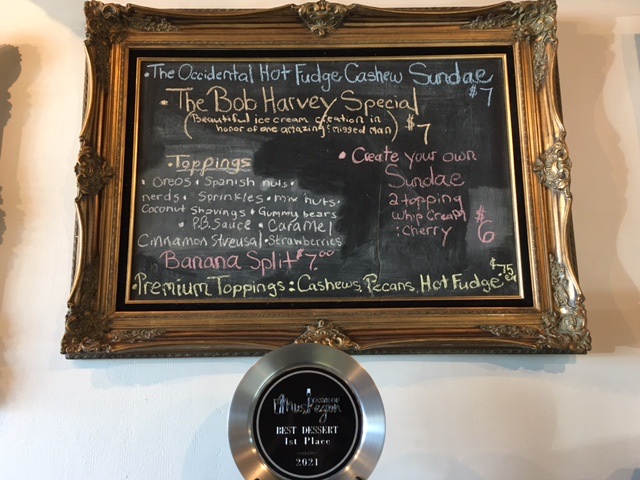 • The Occidental Hot Fudge Cashew Sundae $7
• The Bob Harvey Special
(Beautiful ice cream creation in
honor of one amazing & missed man) $7
• Toppings
• Oreos • Spanish nuts •
nerds • Sprinkles • mix nuts •
Coconut Shavings • Gummy bears
• P.B. Sauce • Caramel
Cinnamon Streusal • Strawberries
• Create your own
Sundae
2 topping
whip cream
: cherry $6
Banana Split $7.00
• Premium Toppings: Cashews, Pecans, Hot Fudge $.75 ea
Muskegon
BEST DESSERT
1st Place
2021